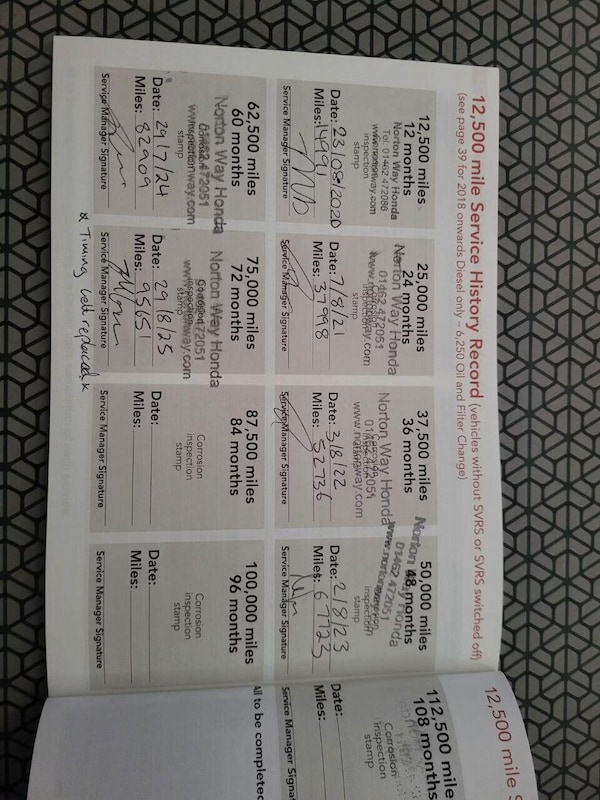 12,500 mile Service History Record (vehicles without SVRS or SVRS switched off)
(see page 39 for 2018 onwards Diesel only – 6,250 Oil and Filter Change)
12,500 miles
12 months
Norton Way Honda
Tel: 01462 472086
www.nortonway.com
inspection
stamp
Date: 23/08/2020
Miles: 14991
Service Manager Signature
25,000 miles
24 months
Norton Way Honda
01462 472051
www.nortonway.com
stamp
Date: 7/8/21
Miles: 37998
Service Manager Signature
37,500 miles
36 months
Norton Way Honda
01462 472051
www.nortonway.com
Date: 3/8/22
Miles: 52736
Service Manager Signature
50,000 miles
48 months
Norton Way Honda
01462 472051
www.nortonway.com
inspection
stamp
Date: 2/8/23
Miles: 67123
Service Manager Signature
62,500 miles
60 months
Norton Way Honda
01462 472051
www.nortonway.com
stamp
Date: 29/7/24
Miles: 82909
Service Manager Signature
75,000 miles
72 months
Norton Way Honda
01462 472051
www.nortonway.com
stamp
Date: 29/8/25
Miles: 95651
Service Manager Signature
& Timing belt replaced
87,500 miles
84 months
Corrosion
inspection
stamp
Date:
Miles:
Service Manager Signature
100,000 miles
96 months
Corrosion
inspection
stamp
Date:
Miles:
Service Manager Signature
12,500 mile S
112,500 mile
108 months
Corrosion
inspection
stamp
Date:
Miles:
Service Manager Signa
All to be completed